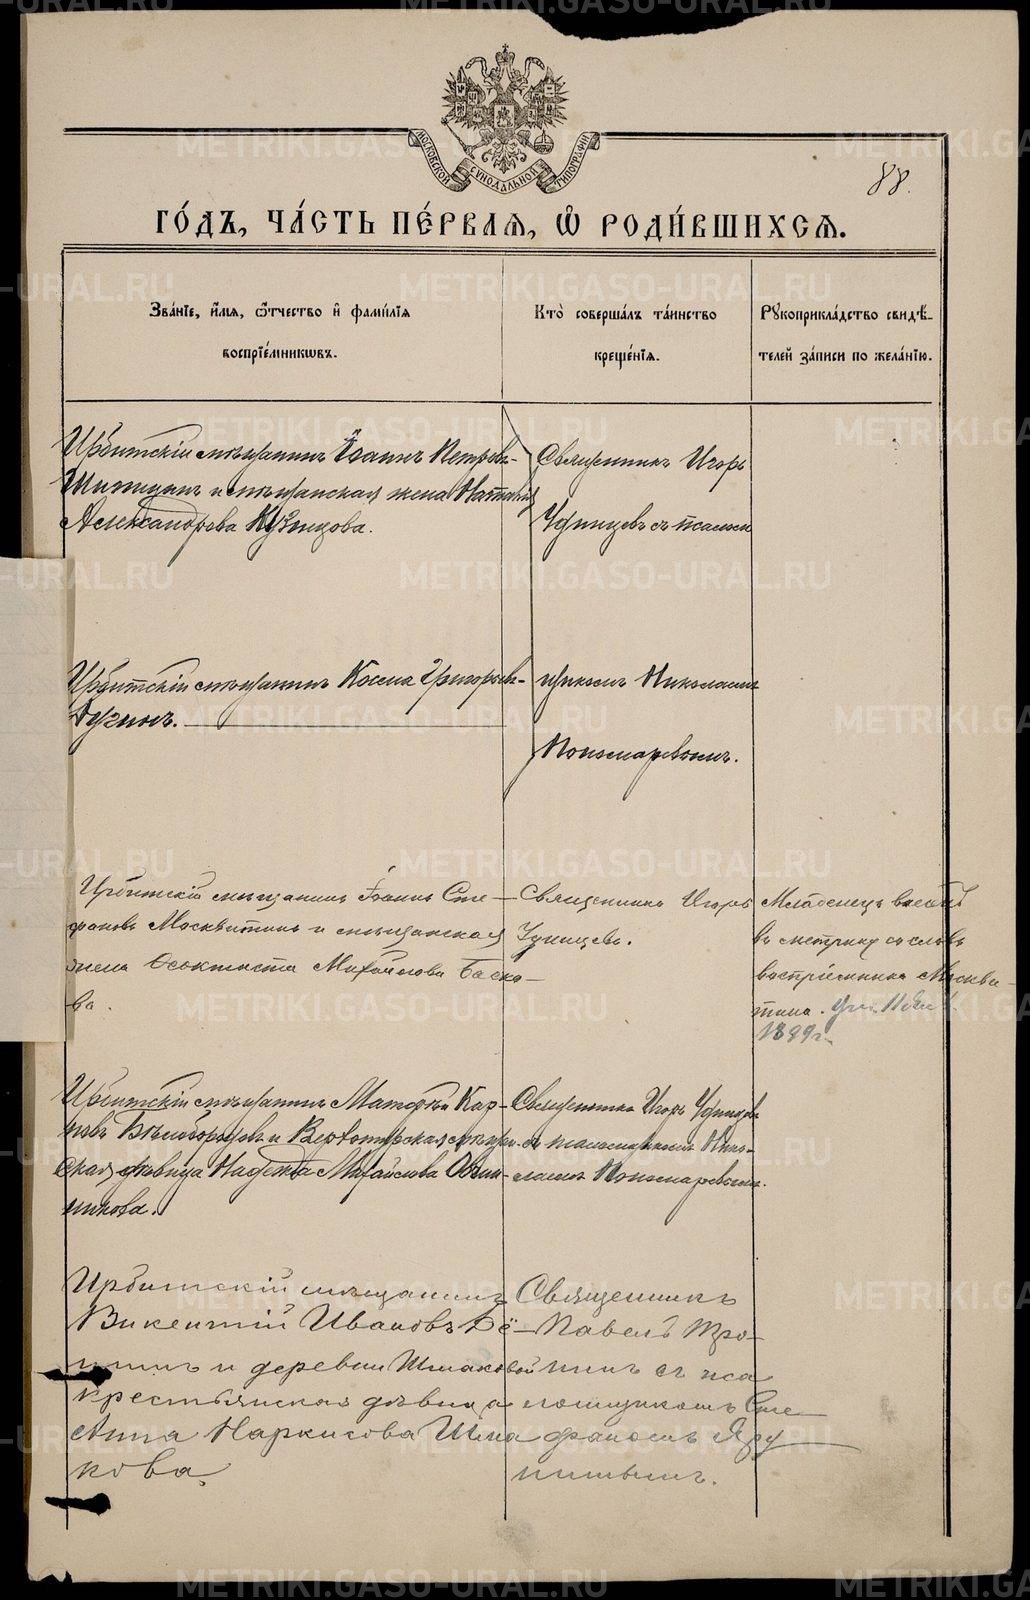 МОСКОВСКОЙ СѴНОДАЛЬНОЙ ТИПОГРАФІИ
88.
ГО́ДЪ, ЧА́СТЬ ПЕ́РВАѦ, Ѡ҆ РОДИ́ВШИХСѦ.
Зва́нїе, и҆́мѧ, ѻ҆́тчество и҆ фами́лїѧ
воспрїе́мникѡвъ.
Кто̀ соверша́лъ та́инство
креще́нїѧ.
Рꙋкоприкла́дство свидѣ́-
телей за́писи по жела́нїю.
Ирбитскій мѣщанинъ Іоаннъ Петровъ
Шипицин и мѣщанская жена Наталія
Александрова Кузнецова.
Священникъ Игорь
Удинцевъ съ псалом
Ирбитскій мѣщанинъ Косма Григорьев-
щикомъ Николаемъ
Пономаревымъ.
Ирбитскій мѣщанинъ Іоаннъ Сте-
фановъ Москвитинъ и мѣщанская
жена Ѳеоктиста Михайлова Баско-
ва.
Священникъ Игорь
Удинцевъ.
Младенецъ внесенъ
въ метрику со словъ
воспріемника Москви-
тина.
1889 г.
Ирбитскій мѣщанинъ Матѳей Кар-
повъ Бѣлобородовъ и Верхотурская мѣщан-
ская дѣвица Надежда Михайлова Овчин-
никова.
Священникъ Игорь Удинцевъ
съ псаломщикомъ Нико-
лаемъ Пономаревымъ.
Ирбитскій мѣщанинъ
Викентій Ивановъ Дё-
минъ и деревни Шмаковой
крестьянская дѣвица
Анна Наркисова Шма
кова.
Священникъ
Павелъ Тро-
нинъ съ пса
ломщикомъ Сте
фаномъ Яру
шинымъ.
METRIKI.GASO-URAL.RU